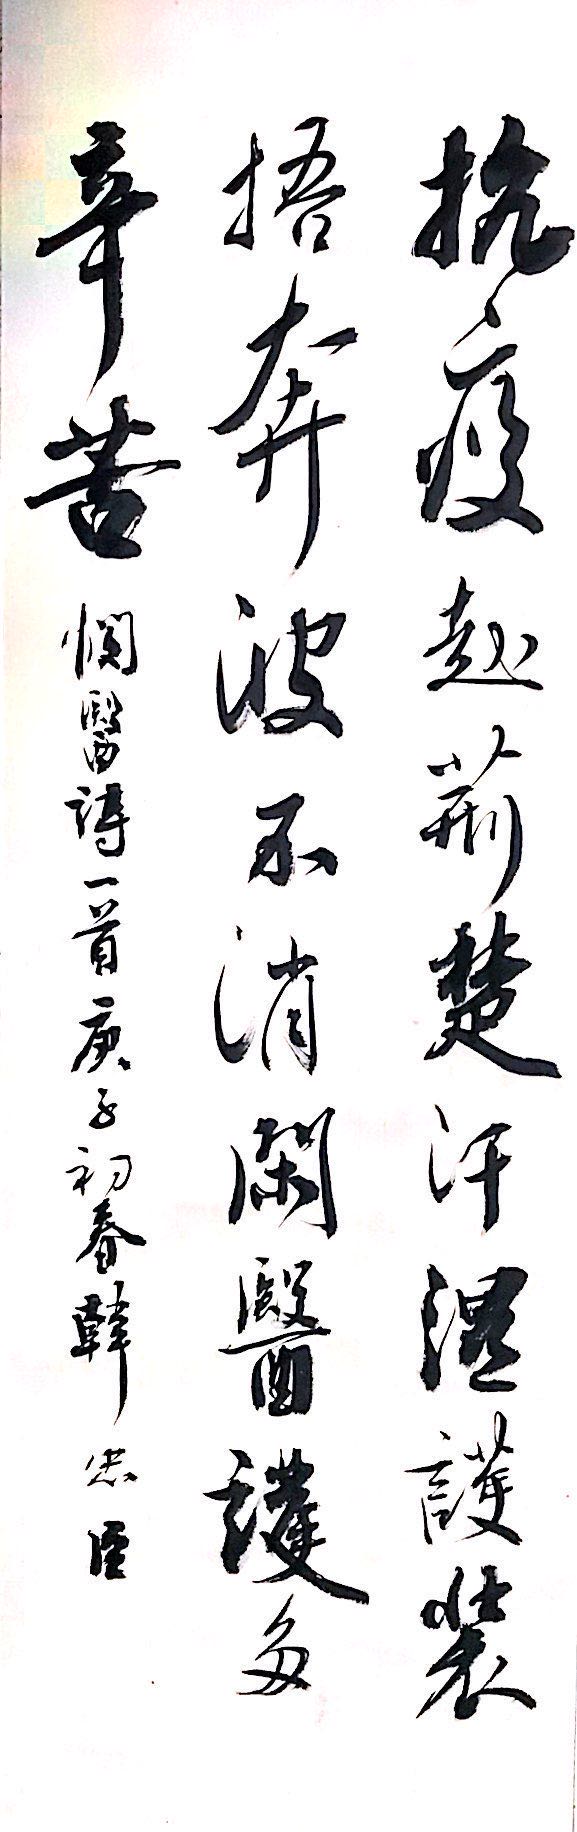 抗疫赴荊楚汗濕護裝
捂奔波不消閑醫護多
辛苦憫醫詩一首庚子初春韓忠臣